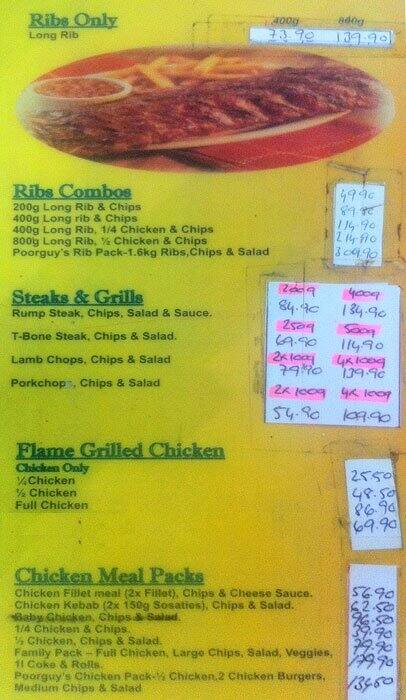 Ribs Only 400g 800g
Long Rib 73.90 139.90
Ribs Combos
200g Long Rib & Chips 49.90
400g Long rib & Chips 89.90
400g Long Rib, 1/4 Chicken & Chips 114.90
800g Long Rib, ½ Chicken & Chips 214.90
Poorguy's Rib Pack-1.6kg Ribs,Chips & Salad 309.90
Steaks & Grills 200g 400g
Rump Steak, Chips, Salad & Sauce. 84.90 134.90
250g 500g
T-Bone Steak, Chips & Salad. 69.90 114.90
2x100g 4x100g
Lamb Chops, Chips & Salad 79.90 139.90
2x100g 4x100g
Porkchops, Chips & Salad 54.90 109.90
Flame Grilled Chicken
Chicken Only
¼Chicken 25.50
½ Chicken 48.50
Full Chicken 86.90
69.90
Chicken Meal Packs
Chicken Fillet meal (2x Fillet), Chips & Cheese Sauce. 56.90
Chicken Kebab (2x 150g Sosaties), Chips & Salad. 62.50
Baby Chicken, Chips & Salad
1/4 Chicken & Chips. 39.90
½ Chicken, Chips & Salad. 79.90
Family Pack – Full Chicken, Large Chips, Salad, Veggies,
1l Coke & Rolls. 179.90
Poorguy's Chicken Pack-½ Chicken,2 Chicken Burgers,
Medium Chips & Salad 134.50